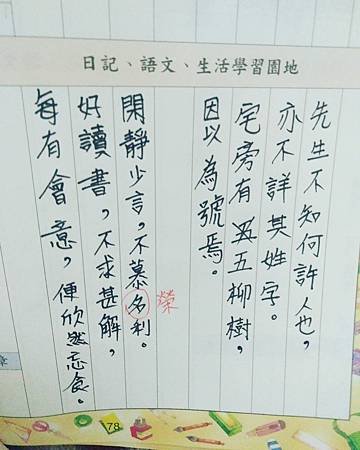 日記、語文、生活學習園地
先生不知何許人也，
亦不詳其姓字。
宅旁有五柳樹，
因以為號焉。
榮
閑靜少言，不慕名利。
好讀書，不求甚解，
每有會意，便欣然忘食。
章
78